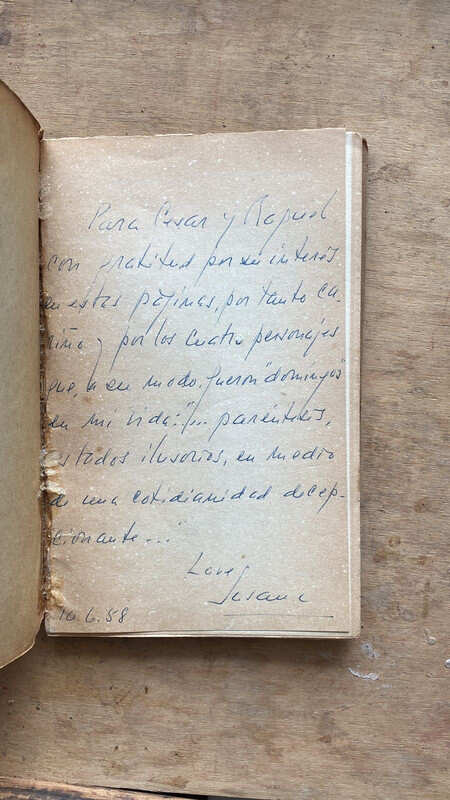 Para Cesar y Raquel
con gratitud por su interés
en estas páginas, por tanto ca-
riño y por los cuatro personajes
que, a su modo, fueron "domingos"
en mi vida: "... paréntesis,
estados ilusorios, en medio
de una cotidianidad decep-
cionante..."
Love,
Susana
16.6.58